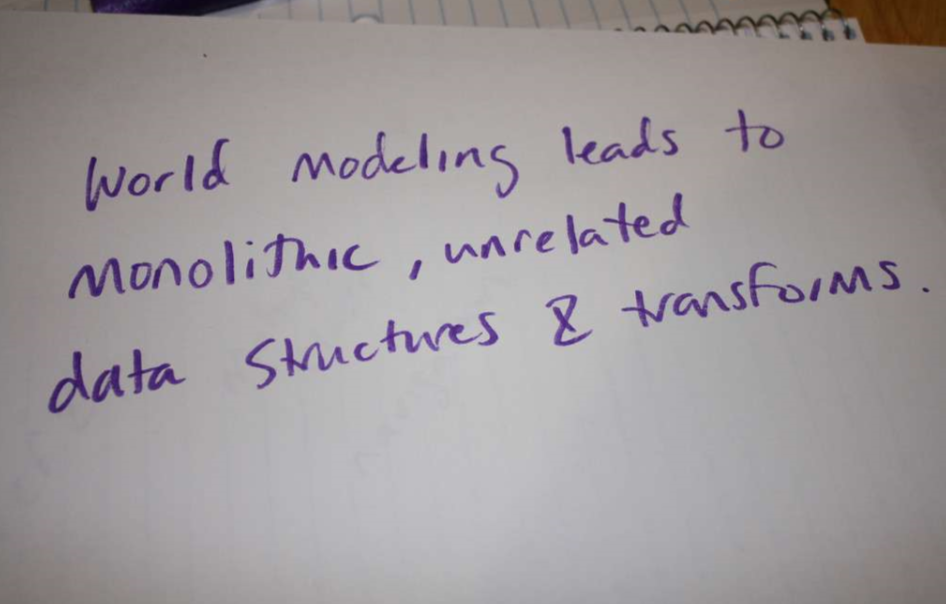 World modeling leads to
monolithic, unrelated
data structures & transforms.